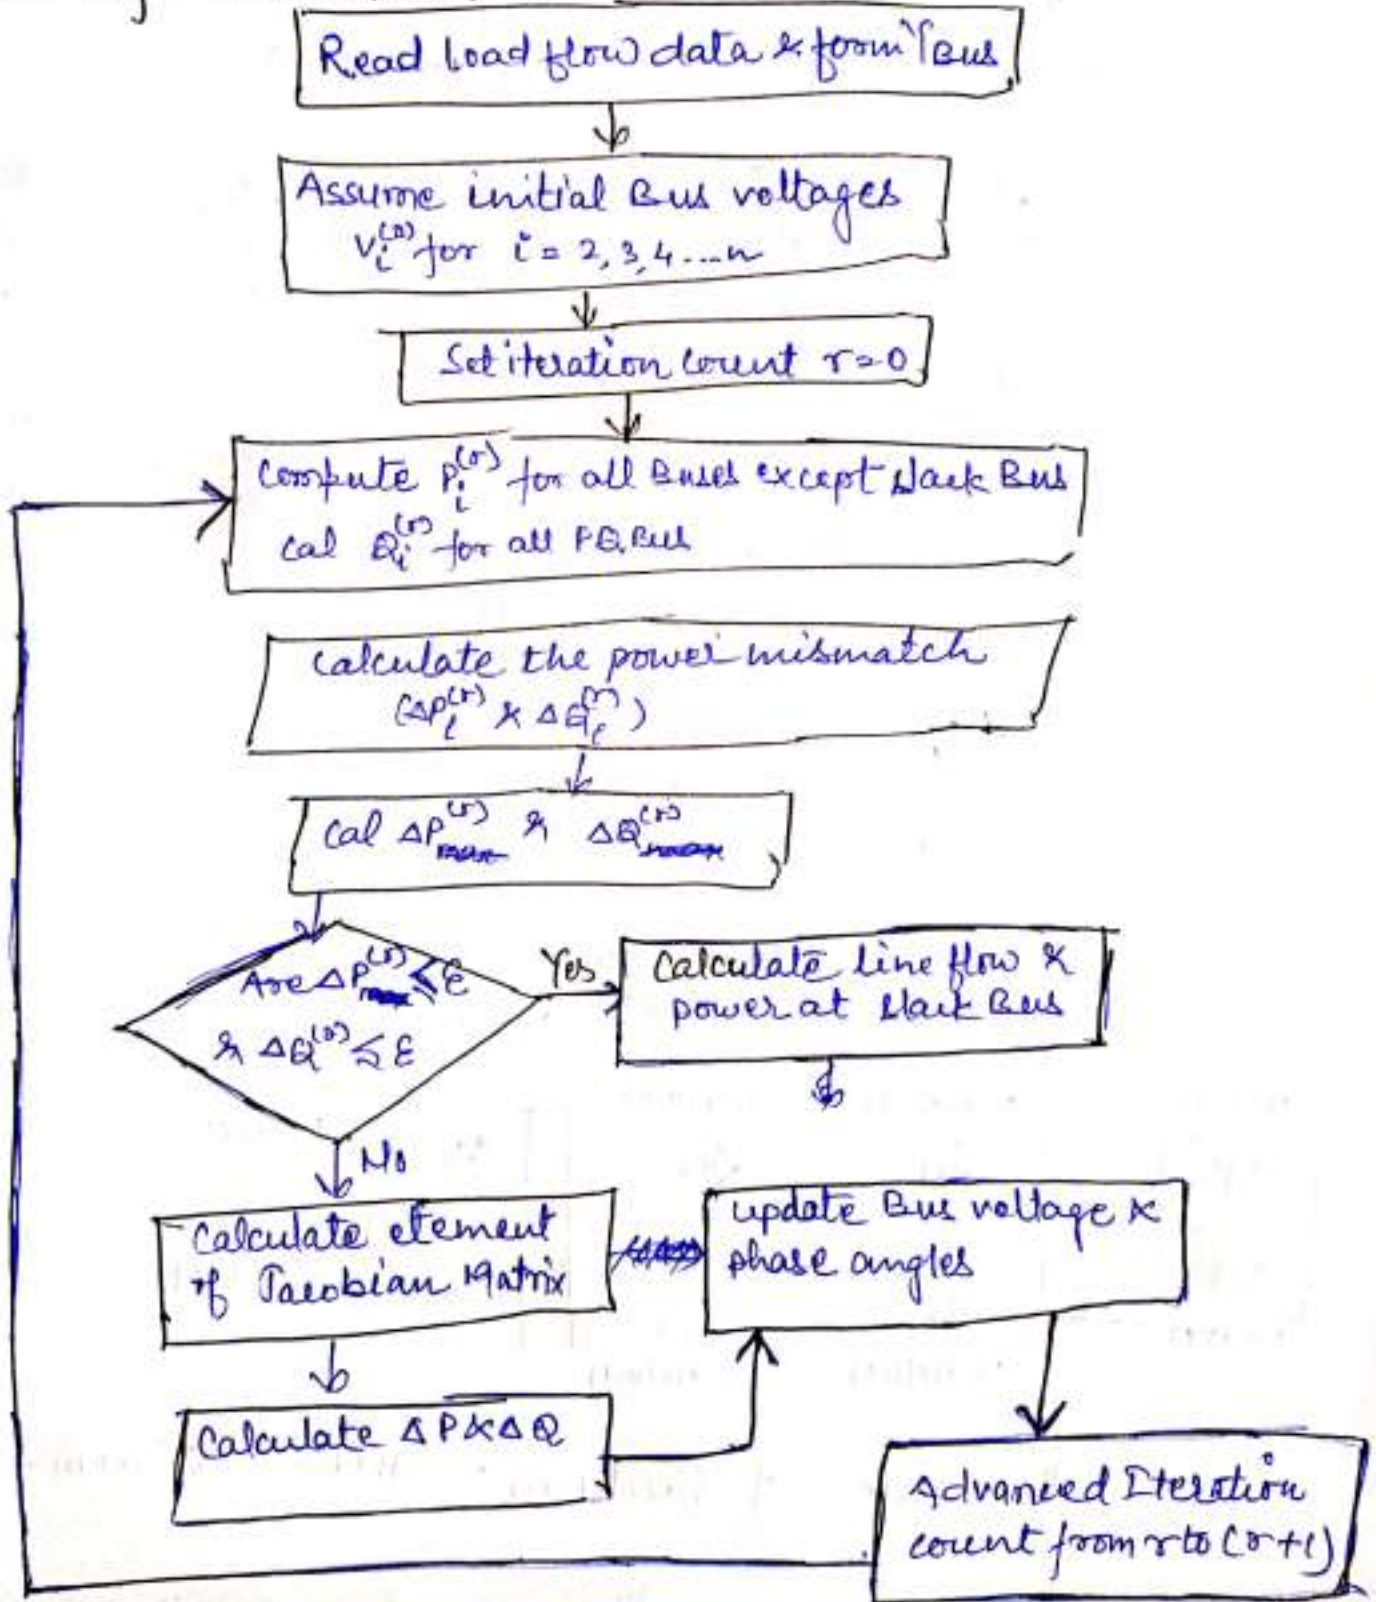 Read load flow data & form YBus
Assume initial Bus voltages
Vi(0) for i = 2, 3, 4 ....n
Set iteration count r=0
Compute Pi(r) for all Buses except slack Bus
Cal Qi(r) for all PQ Bus
Calculate the power mismatch
(ΔPi(r) & ΔQi(r))
Cal ΔP(r) & ΔQ(r)
Are ΔP(r) ≤ ε
& ΔQ(r) ≤ ε
Yes
Calculate line flow &
power at slack Bus
No
Calculate element
of Jacobian Matrix
update Bus voltage &
phase angles
Calculate ΔP & ΔQ
Advanced Iteration
count from r to (r+1)